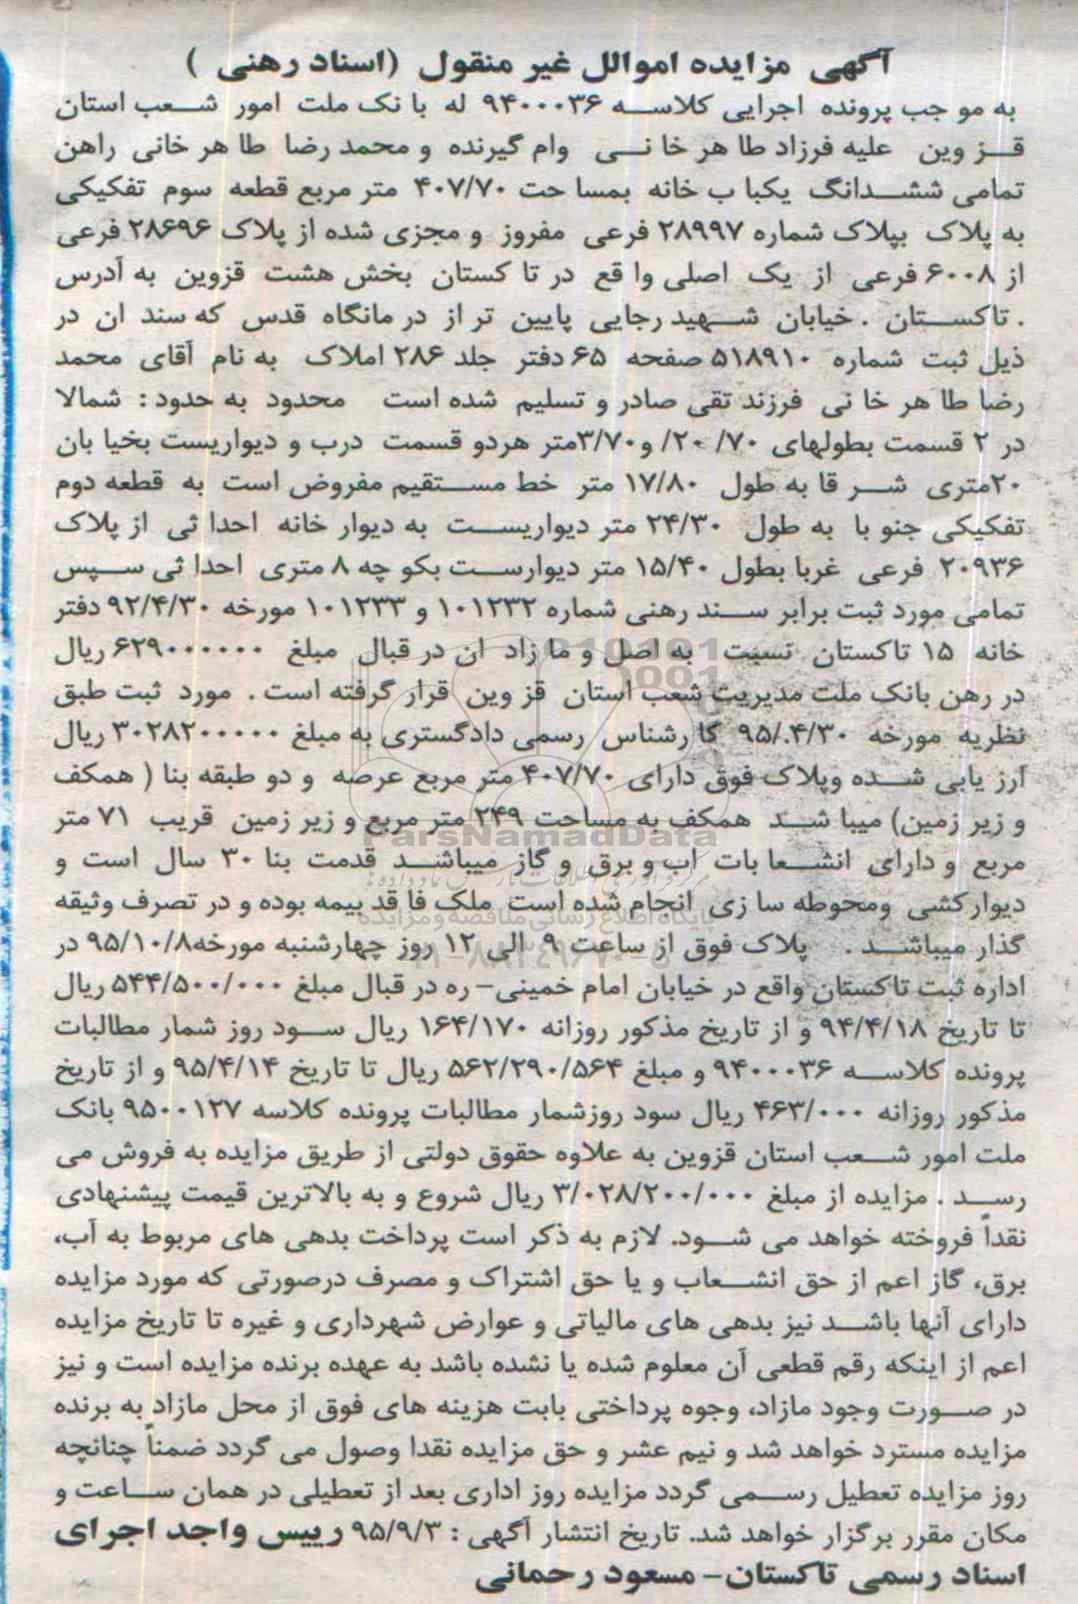 آگهی مزایده اموالل غیر منقول (اسناد رهنی )
به مو جب پرونده اجرایی کلاسه ۹۴۰۰۰۳۶ له با نک ملت امور شعب استان
قز وین علیه فرزاد طا هر خا نی وام گیرنده و محمد رضا طا هر خانی راهن
تمامی ششدانگ یکبا ب خانه بمسا حت ۴۰۷/۷۰ متر مربع قطعه سوم تفکیکی
به پلاک بپلاک شماره ۲۸۹۹۷ فرعی مفروز و مجزی شده از پلاک ۲۸۶۹۶ فرعی
از ۶۰۰۸ فرعی از یک اصلی وا قع در تا کستان بخش هشت قزوین به آدرس
. تاکستان . خیابان شهید رجایی پایین تر از در مانگاه قدس که سند ان در
ذیل ثبت شماره ۵۱۸۹۱۰ صفحه ۶۵ دفتر جلد ۲۸۶ املاک به نام آقای محمد
رضا طا هر خا نی فرزند تقی صادر و تسلیم شده است محدود به حدود : شمالا
در ۲ قسمت بطولهای ۷۰/ ۲۰/ و۳/۷۰متر هردو قسمت درب و دیواریست بخیا بان
۲۰متری شر قا به طول ۱۷/۸۰ متر خط مستقیم مفروض است به قطعه دوم
تفکیکی جنو با به طول ۲۴/۳۰ متر دیواریست به دیوار خانه احدا ثی از پلاک
۲۰۹۳۶ فرعی غربا بطول ۱۵/۴۰ متر دیوارست بکو چه ۸ متری احدا ثی سپس
تمامی مورد ثبت برابر سند رهنی شماره ۱۰۱۲۳۲ و ۱۰۱۲۳۳ مورخه ۹۲/۴/۳۰ دفتر
خانه ۱۵ تاکستان نسبت به اصل و ما زاد ان در قبال مبلغ ۶۲۹۰۰۰۰۰۰ ریال
در رهن بانک ملت مدیریت شعب استان قز وین قرار گرفته است . مورد ثبت طبق
نظریه مورخه ۹۵/.۴/۳۰ کا رشناس رسمی دادگستری به مبلغ ۳۰۲۸۲۰۰۰۰۰ ریال
ارز یابی شده وپلاک فوق دارای ۴۰۷/۷۰ متر مربع عرصه و دو طبقه بنا ( همکف
و زیر زمین) میبا شد همکف به مساحت ۲۴۹ متر مربع و زیر زمین قریب ۷۱ متر
مربع و دارای انشعا بات اب و برق و گاز میباشد قدمت بنا ۳۰ سال است و
دیوارکشی ومحوطه سا زی انجام شده است ملک فا قد بیمه بوده و در تصرف وثیقه
گذار میباشد . پلاک فوق از ساعت ۹ الی ۱۲ روز چهارشنبه مورخه۹۵/۱۰/۸ در
اداره ثبت تاکستان واقع در خیابان امام خمینی- ره در قبال مبلغ ۵۴۴/۵۰۰/۰۰۰ ریال
تا تاریخ ۹۴/۴/۱۸ و از تاریخ مذکور روزانه ۱۶۴/۱۷۰ ریال سود روز شمار مطالبات
پرونده کلاسه ۹۴۰۰۰۳۶ و مبلغ ۵۶۲/۲۹۰/۵۶۴ ریال تا تاریخ ۹۵/۴/۱۴ و از تاریخ
مذکور روزانه ۴۶۳/۰۰۰ ریال سود روزشمار مطالبات پرونده کلاسه ۹۵۰۰۱۲۷ بانک
ملت امور شعب استان قزوین به علاوه حقوق دولتی از طریق مزایده به فروش می
رسد . مزایده از مبلغ ۳/۰۲۸/۲۰۰/۰۰۰ ریال شروع و به بالاترین قیمت پیشنهادی
نقداً فروخته خواهد می شود. لازم به ذکر است پرداخت بدهی های مربوط به آب،
برق، گاز اعم از حق انشعاب و یا حق اشتراک و مصرف درصورتی که مورد مزایده
دارای آنها باشد نیز بدهی های مالیاتی و عوارض شهرداری و غیره تا تاریخ مزایده
اعم از اینکه رقم قطعی آن معلوم شده یا نشده باشد به عهده برنده مزایده است و نیز
در صورت وجود مازاد، وجوه پرداختی بابت هزینه های فوق از محل مازاد به برنده
مزایده مسترد خواهد شد و نیم عشر و حق مزایده نقدا وصول می گردد ضمناً چنانچه
روز مزایده تعطیل رسمی گردد مزایده روز اداری بعد از تعطیلی در همان ساعت و
مکان مقرر برگزار خواهد شد. تاریخ انتشار آگهی : ۹۵/۹/۳ رییس واجد اجرای
اسناد رسمی تاکستان- مسعود رحمانی
ParsNamadData
پایگاه اطلاع رسانی مناقصه و مزایده